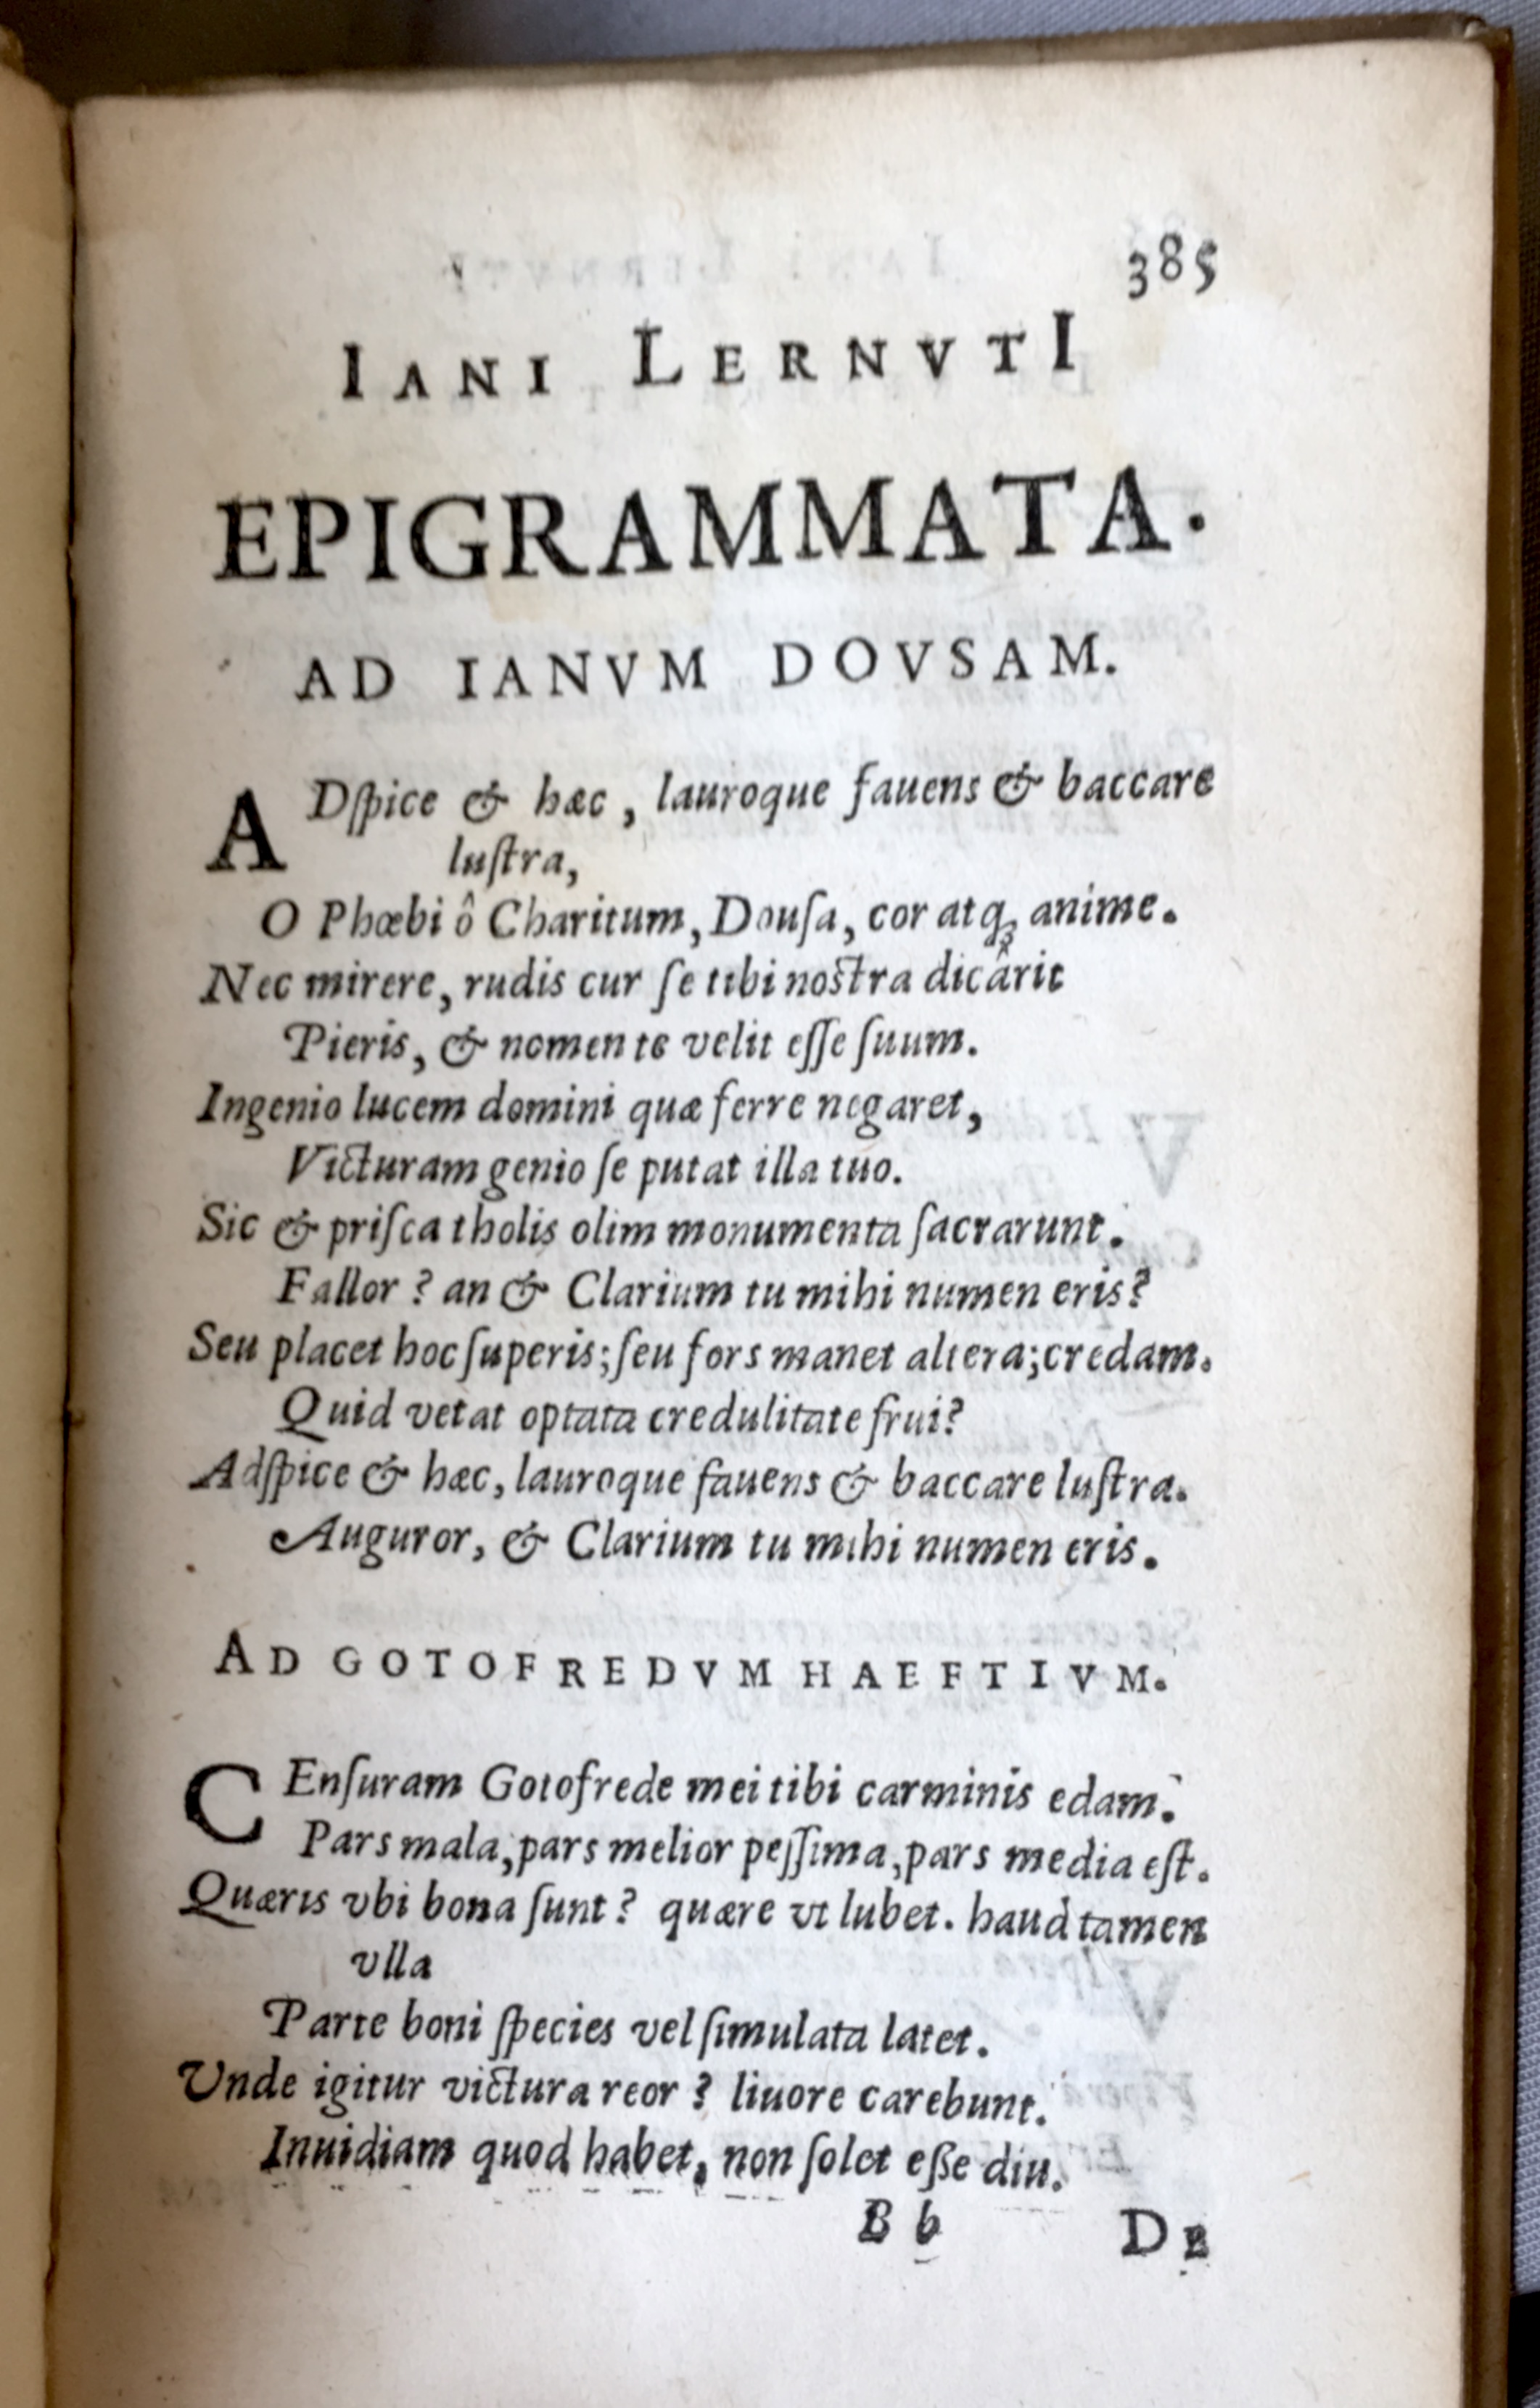 385
IANI LERNVTI
EPIGRAMMATA.
AD IANVM DOVSAM.
ADſpice & hæc, lauroque fauens & baccare
luſtra,
O Phœbi ô Charitum, Douſa, cor atq; anime.
Nec mirere, rudis cur ſe tibi noſtra dicârit
Pieris, & nomen te velit eſſe ſuum.
Ingenio lucem domini quæ ferre negaret,
Victuram genio ſe putat illa tuo.
Sic & priſca tholis olim monumenta ſacrarunt.
Fallor? an & Clarium tu mihi numen eris?
Seu placet hoc ſuperis; ſeu fors manet altera; credam.
Quid vetat optata credulitate frui?
Adſpice & hæc, lauroque fauens & baccare luſtra.
Auguror, & Clarium tu mihi numen eris.
AD GOTOFREDVM HAEFTIVM.
CEnſuram Gotofrede mei tibi carminis edam.
Pars mala, pars melior peſſima, pars media eſt.
Quæris vbi bona ſunt? quære vt lubet. haud tamen
vlla
Parte boni ſpecies vel ſimulata latet.
Vnde igitur victura reor? liuore carebunt.
Inuidiam quod habet, non ſolet eſſe diu.
B b
DE